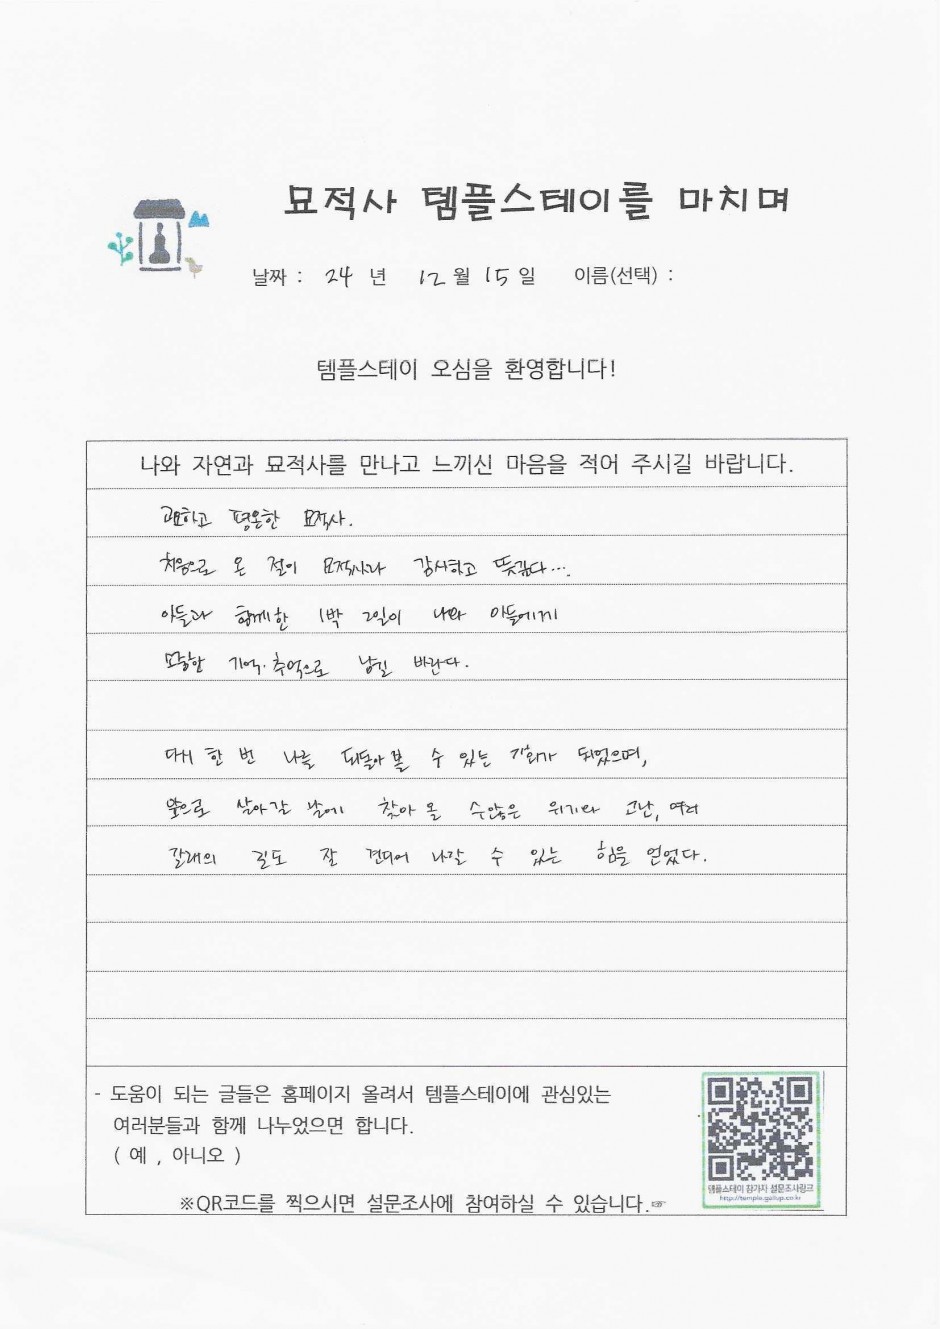 묘적사 템플스테이를 마치며
날짜 : 24 년 12 월 15 일 이름(선택) :
템플스테이 오심을 환영합니다!
나와 자연과 묘적사를 만나고 느끼신 마음을 적어 주시길 바랍니다.
고요하고 평온한 묘적사.
처음으로 온 절이 묘적사라 감사하고 뜻깊다….
아들과 함께한 1박 2일이 나와 아들에게
소중한 기억·추억으로 남길 바란다.
다시 한 번 나를 되돌아 볼 수 있는 기회가 되었으며,
앞으로 살아갈 날에 찾아 올 수많은 위기와 고난, 여러
갈래의 길도 잘 견디어 나갈 수 있는 힘을 얻었다.
- 도움이 되는 글들은 홈페이지 올려서 템플스테이에 관심있는
여러분들과 함께 나누었으면 합니다.
( 예 , 아니오 )
※QR코드를 찍으시면 설문조사에 참여하실 수 있습니다.☞
템플스테이 참가자 설문조사링크
http://temple.gallup.co.kr